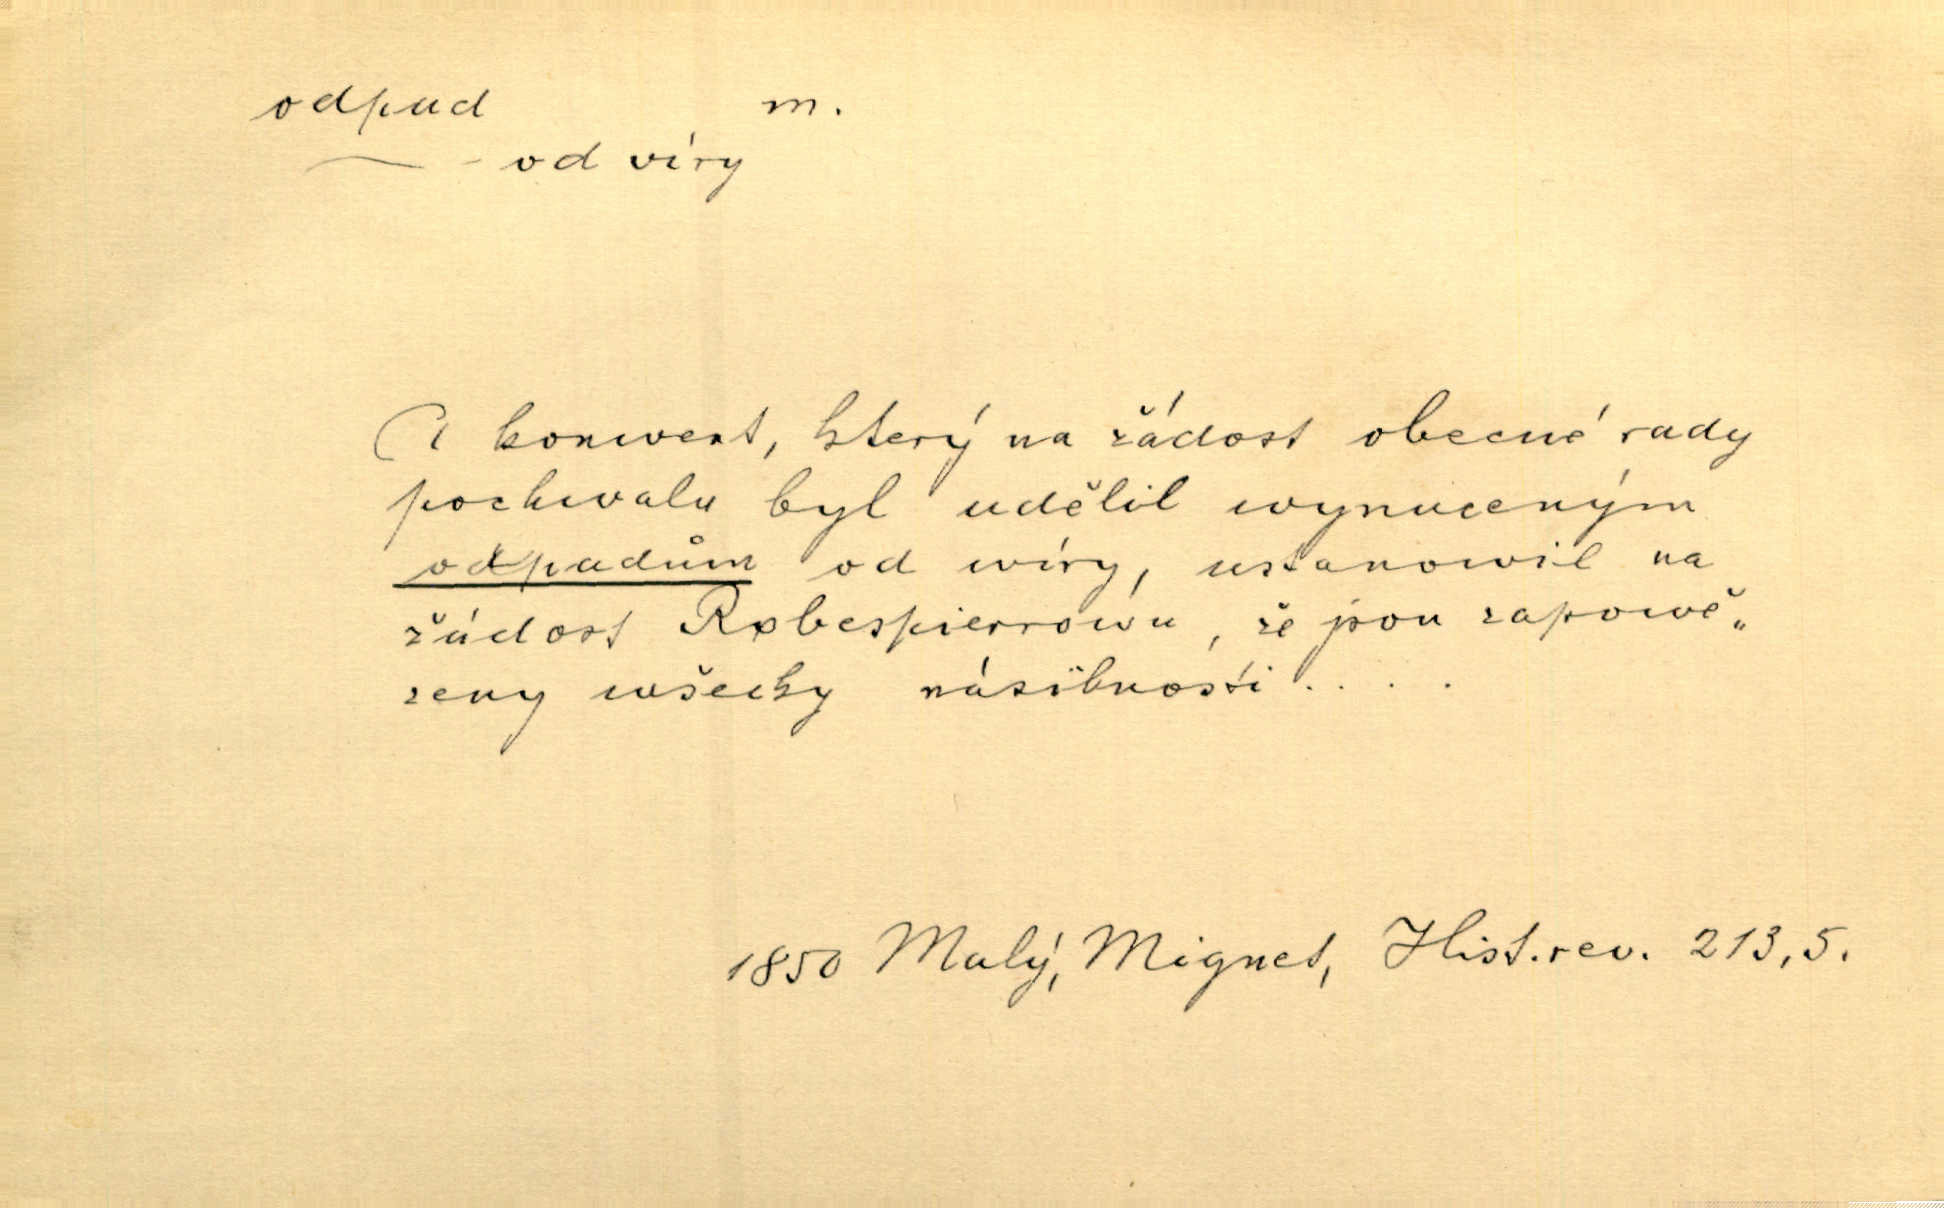 odpad m.
— - od víry
A konwent, který na žádost obecné rady
pochwalu byl udělil wynuceným
odpadům od wíry, ustanowil na
žádost Robespierrowu, že jsou zapowě„
zeny wšecky násilnosti . . . .
1850 Malý, Mignet, Hist. rev. 213,5.